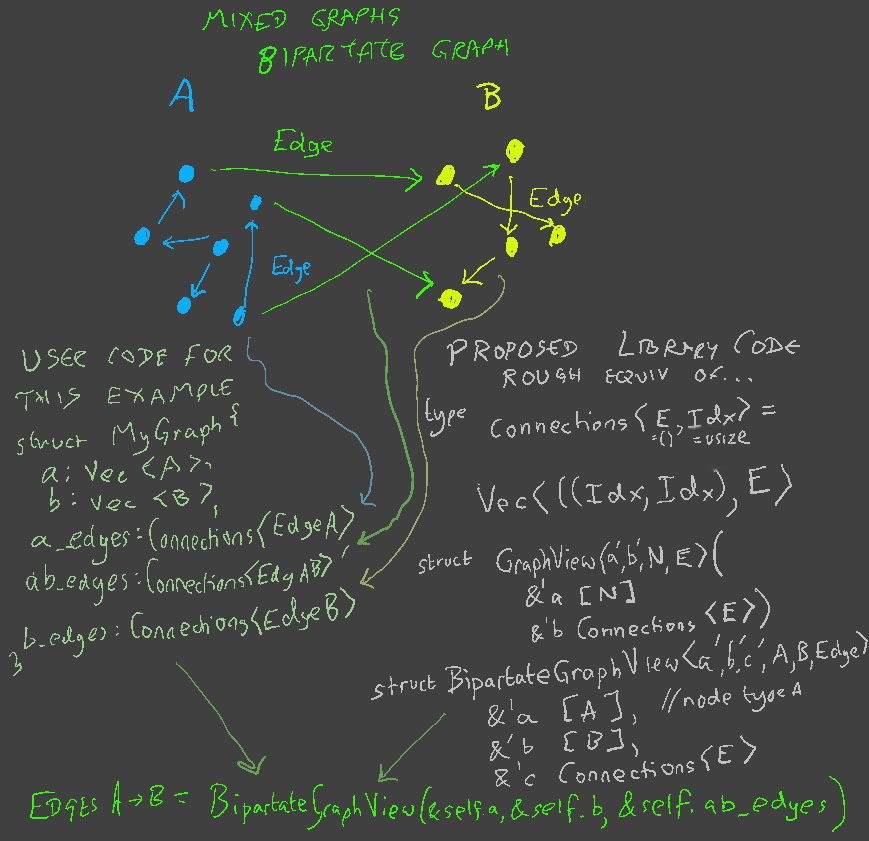 MIXED GRAPHS
BIPARTATE GRAPH
A
B
Edge
Edge
Edge
USER CODE FOR
THIS EXAMPLE
struct MyGraph {
a: Vec <A>,
b: Vec <B>,
a_edges: Connections<EdgeA>
ab_edges: Connections<EdgAB>,
b_edges: Connections<EdgeB>
}
PROPOSED LIBRARY CODE
ROUGH EQUIV OF...
type Connections <E, Idx> =
=() =usize
Vec<((Idx, Idx), E>
struct GraphView(a',b',N,E>(
&'a [N]
&'b Connections <E>)
struct BipartateGraphView<a',b',c',A,B,Edge>
&'a [A], //node type A
&'b [B],
&'c Connections<E>
EDGES A→B = BipartateGraphView(&self.a, &self.b, &self.ab_edges)